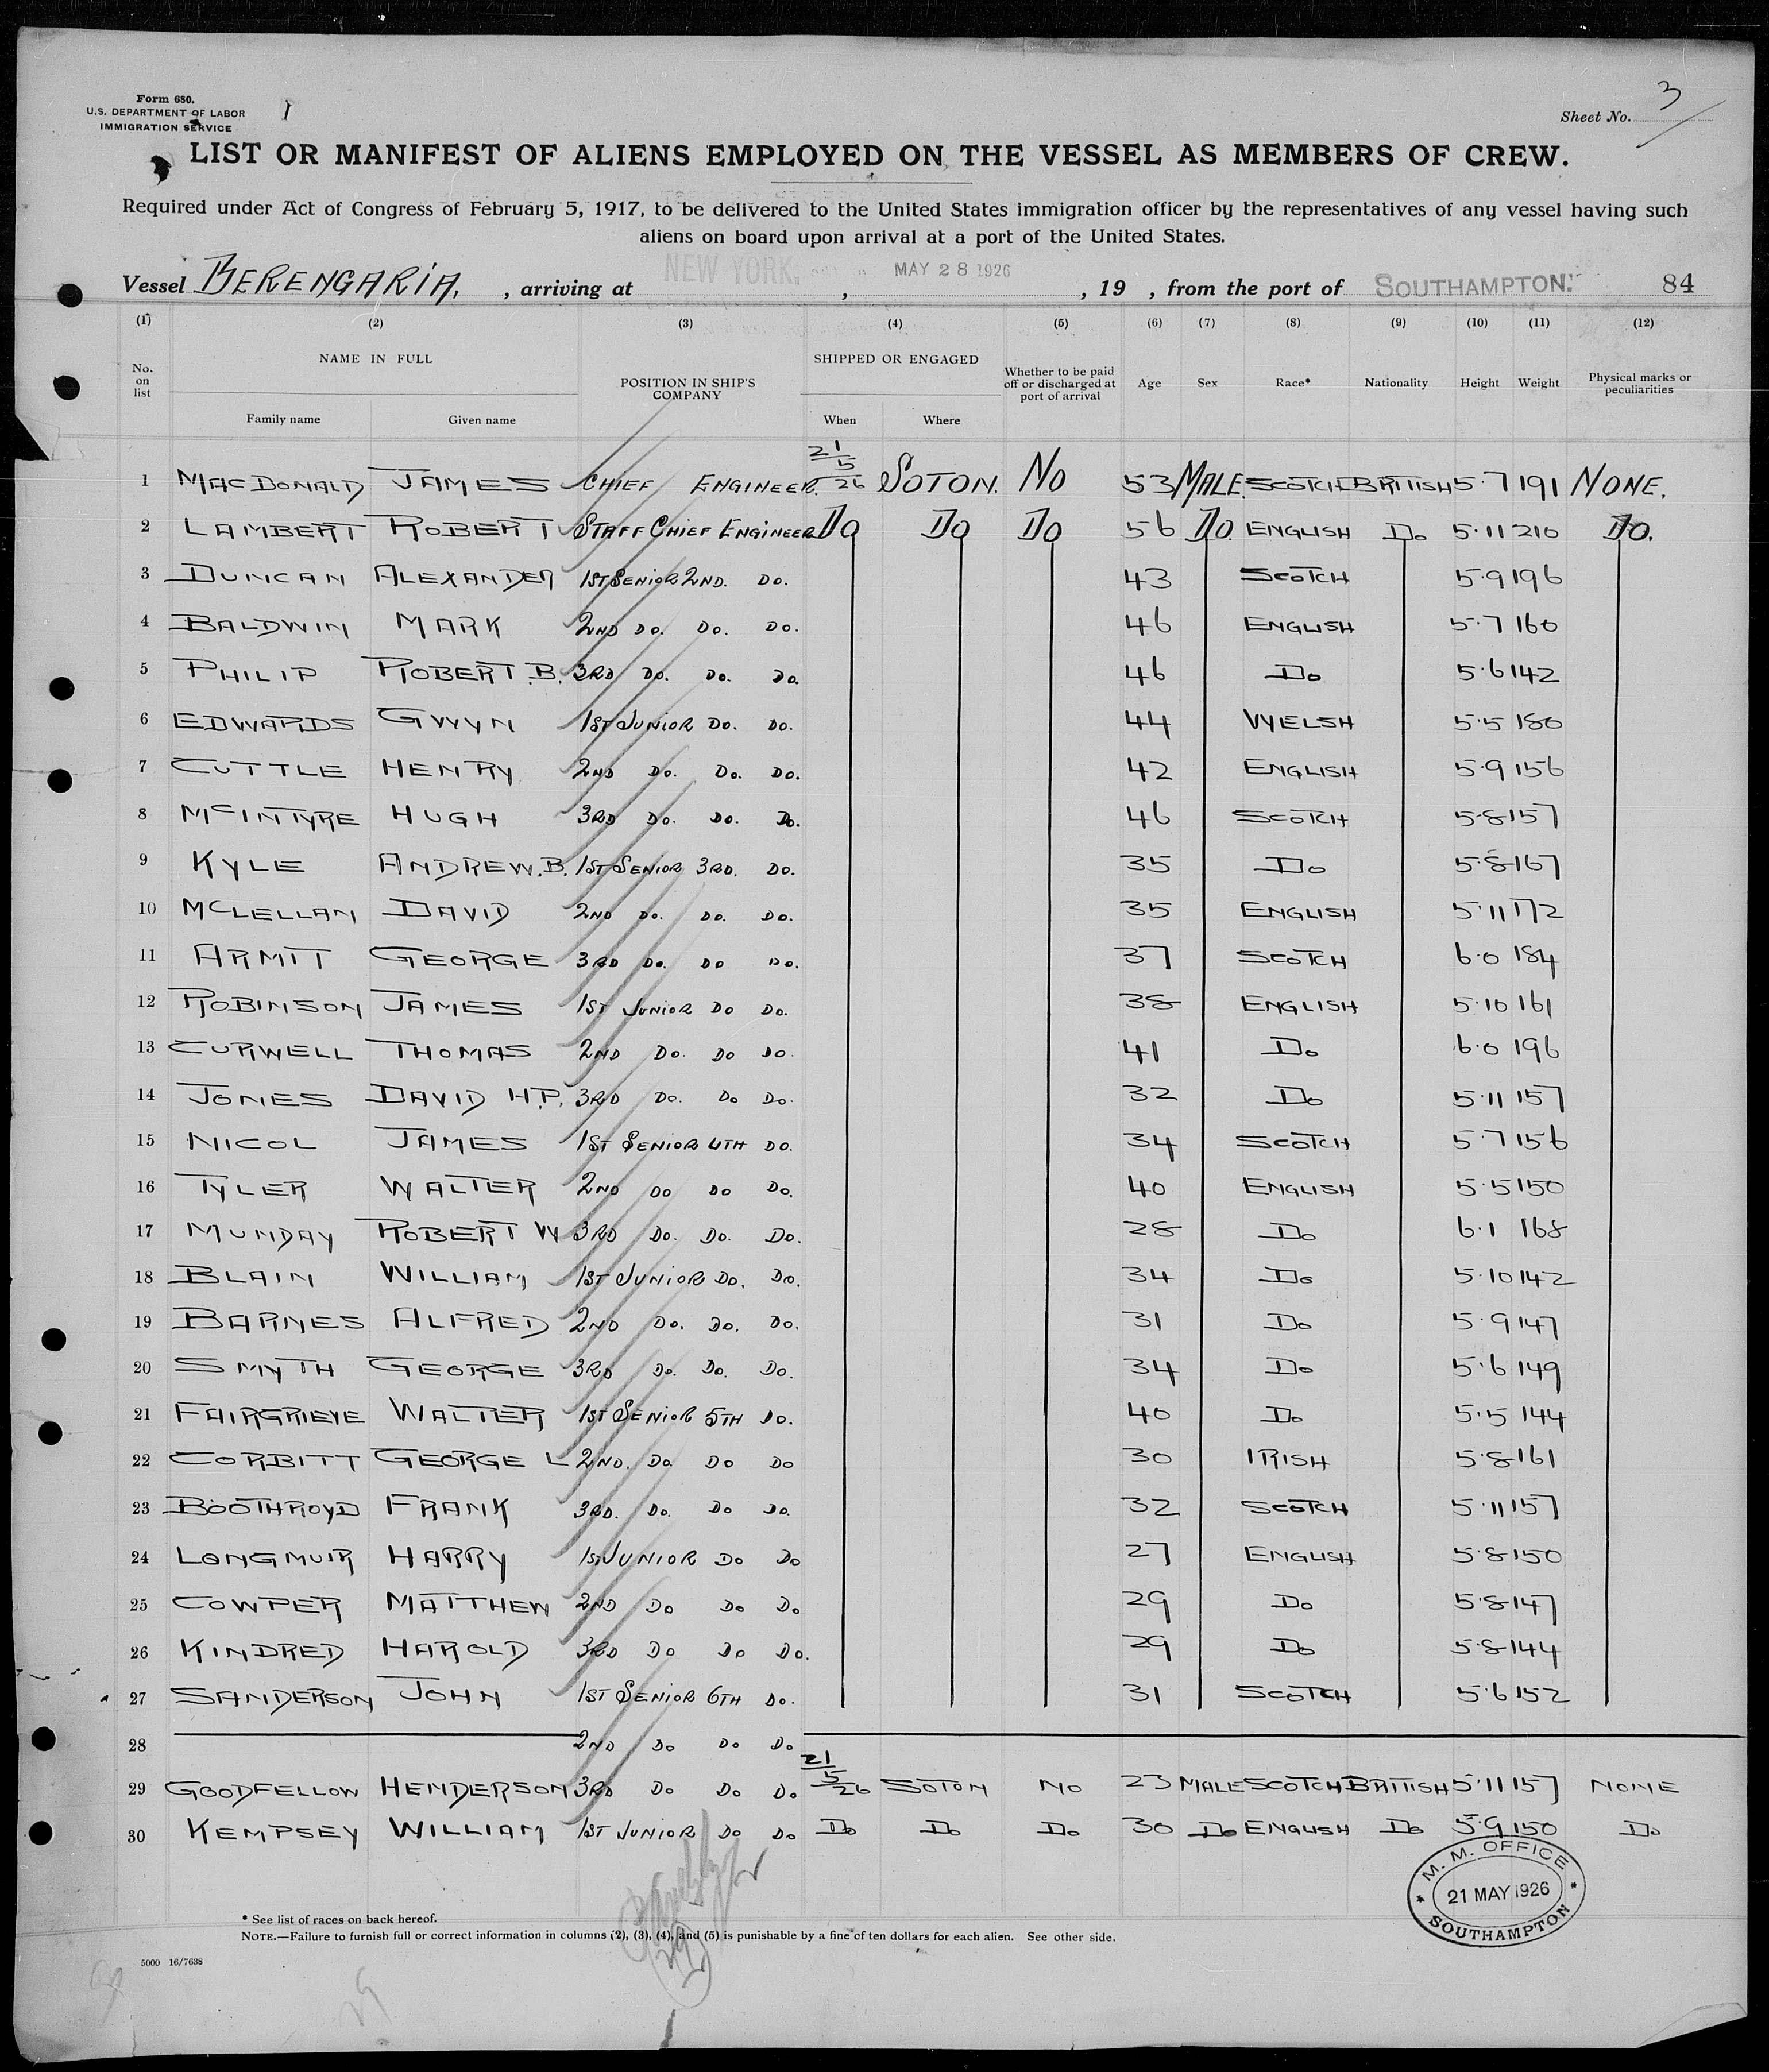 Form 680.
U.S. DEPARTMENT OF LABOR
IMMIGRATION SERVICE
1
Sheet No. 3
LIST OR MANIFEST OF ALIENS EMPLOYED ON THE VESSEL AS MEMBERS OF CREW.
Required under Act of Congress of February 5, 1917, to be delivered to the United States immigration officer by the representatives of any vessel having such
aliens on board upon arrival at a port of the United States.
Vessel BERENGARIA, , arriving at NEW YORK. , MAY 28 1926 , 19 , from the port of SOUTHAMPTON. 84
(1) (2) (3) (4) (5) (6) (7) (8) (9) (10) (11) (12)
No. on list NAME IN FULL Family name Given name POSITION IN SHIP'S COMPANY SHIPPED OR ENGAGED When Where Whether to be paid off or discharged at port of arrival Age Sex Race* Nationality Height Weight Physical marks or peculiarities
1 MACDONALD JAMES CHIEF ENGINEER. 21/5/26 SOTON. NO 53 MALE. SCOTCH BRITISH 5·7 191 NONE.
2 LAMBERT ROBERT STAFF CHIEF ENGINEER DO DO DO 56 DO. ENGLISH DO 5·11 210 DO.
3 DUNCAN ALEXANDER 1ST SENIOR 2ND. DO. 43 SCOTCH 5·9 196
4 BALDWIN MARK 2ND DO. DO. DO. 46 ENGLISH 5·7 160
5 PHILIP ROBERT.B. 3RD DO. DO. DO. 46 DO 5·6 142
6 EDWARDS GWYN 1ST JUNIOR DO. DO. 44 WELSH 5·5 180
7 CUTTLE HENRY 2ND DO. DO. DO. 42 ENGLISH 5·9 156
8 MCINTYRE HUGH 3RD DO. DO. DO. 46 SCOTCH 5·8 157
9 KYLE ANDREW.B. 1ST SENIOR 3RD. DO. 35 DO 5·8 167
10 MCLELLAN DAVID 2ND DO. DO. DO. 35 ENGLISH 5·11 172
11 ARMIT GEORGE 3RD DO. DO DO. 37 SCOTCH 6·0 184
12 ROBINSON JAMES 1ST JUNIOR DO DO. 38 ENGLISH 5·10 161
13 CURWELL THOMAS 2ND DO. DO DO. 41 DO 6·0 196
14 JONES DAVID H.P. 3RD DO. DO DO. 32 DO 5·11 157
15 NICOL JAMES 1ST SENIOR 4TH DO. 34 SCOTCH 5·7 156
16 TYLER WALTER 2ND DO DO DO. 40 ENGLISH 5·5 150
17 MUNDAY ROBERT W 3RD DO. DO. DO. 28 DO 6·1 168
18 BLAIN WILLIAM 1ST JUNIOR DO. DO. 34 DO 5·10 142
19 BARNES ALFRED 2ND DO. DO. DO. 31 DO 5·9 147
20 SMYTH GEORGE 3RD DO. DO. DO. 34 DO 5·6 149
21 FAIRGRIEVE WALTER 1ST SENIOR 5TH DO. 40 DO 5·5 144
22 CORBITT GEORGE L 2ND. DO DO DO 30 IRISH 5·8 161
23 BOOTHROYD FRANK 3RD. DO. DO DO. 32 SCOTCH 5·11 157
24 LONGMUIR HARRY 1ST JUNIOR DO DO 27 ENGLISH 5·8 150
25 COWPER MATTHEW 2ND DO DO DO 29 DO 5·8 147
26 KINDRED HAROLD 3RD DO DO DO. 29 DO 5·8 144
27 SANDERSON JOHN 1ST SENIOR 6TH DO. 31 SCOTCH 5·6 152
28 2ND DO DO DO
29 GOODFELLOW HENDERSON 3RD DO DO DO 21/5/26 SOTON NO 23 MALE SCOTCH BRITISH 5·11 157 NONE
30 KEMPSEY WILLIAM 1ST JUNIOR DO DO DO DO DO 30 DO ENGLISH DO 5·9 150 DO
M. M. OFFICE
21 MAY 1926
SOUTHAMPTON
* See list of races on back hereof.
NOTE.—Failure to furnish full or correct information in columns (2), (3), (4), and (5) is punishable by a fine of ten dollars for each alien. See other side.
5000 16/7638
29